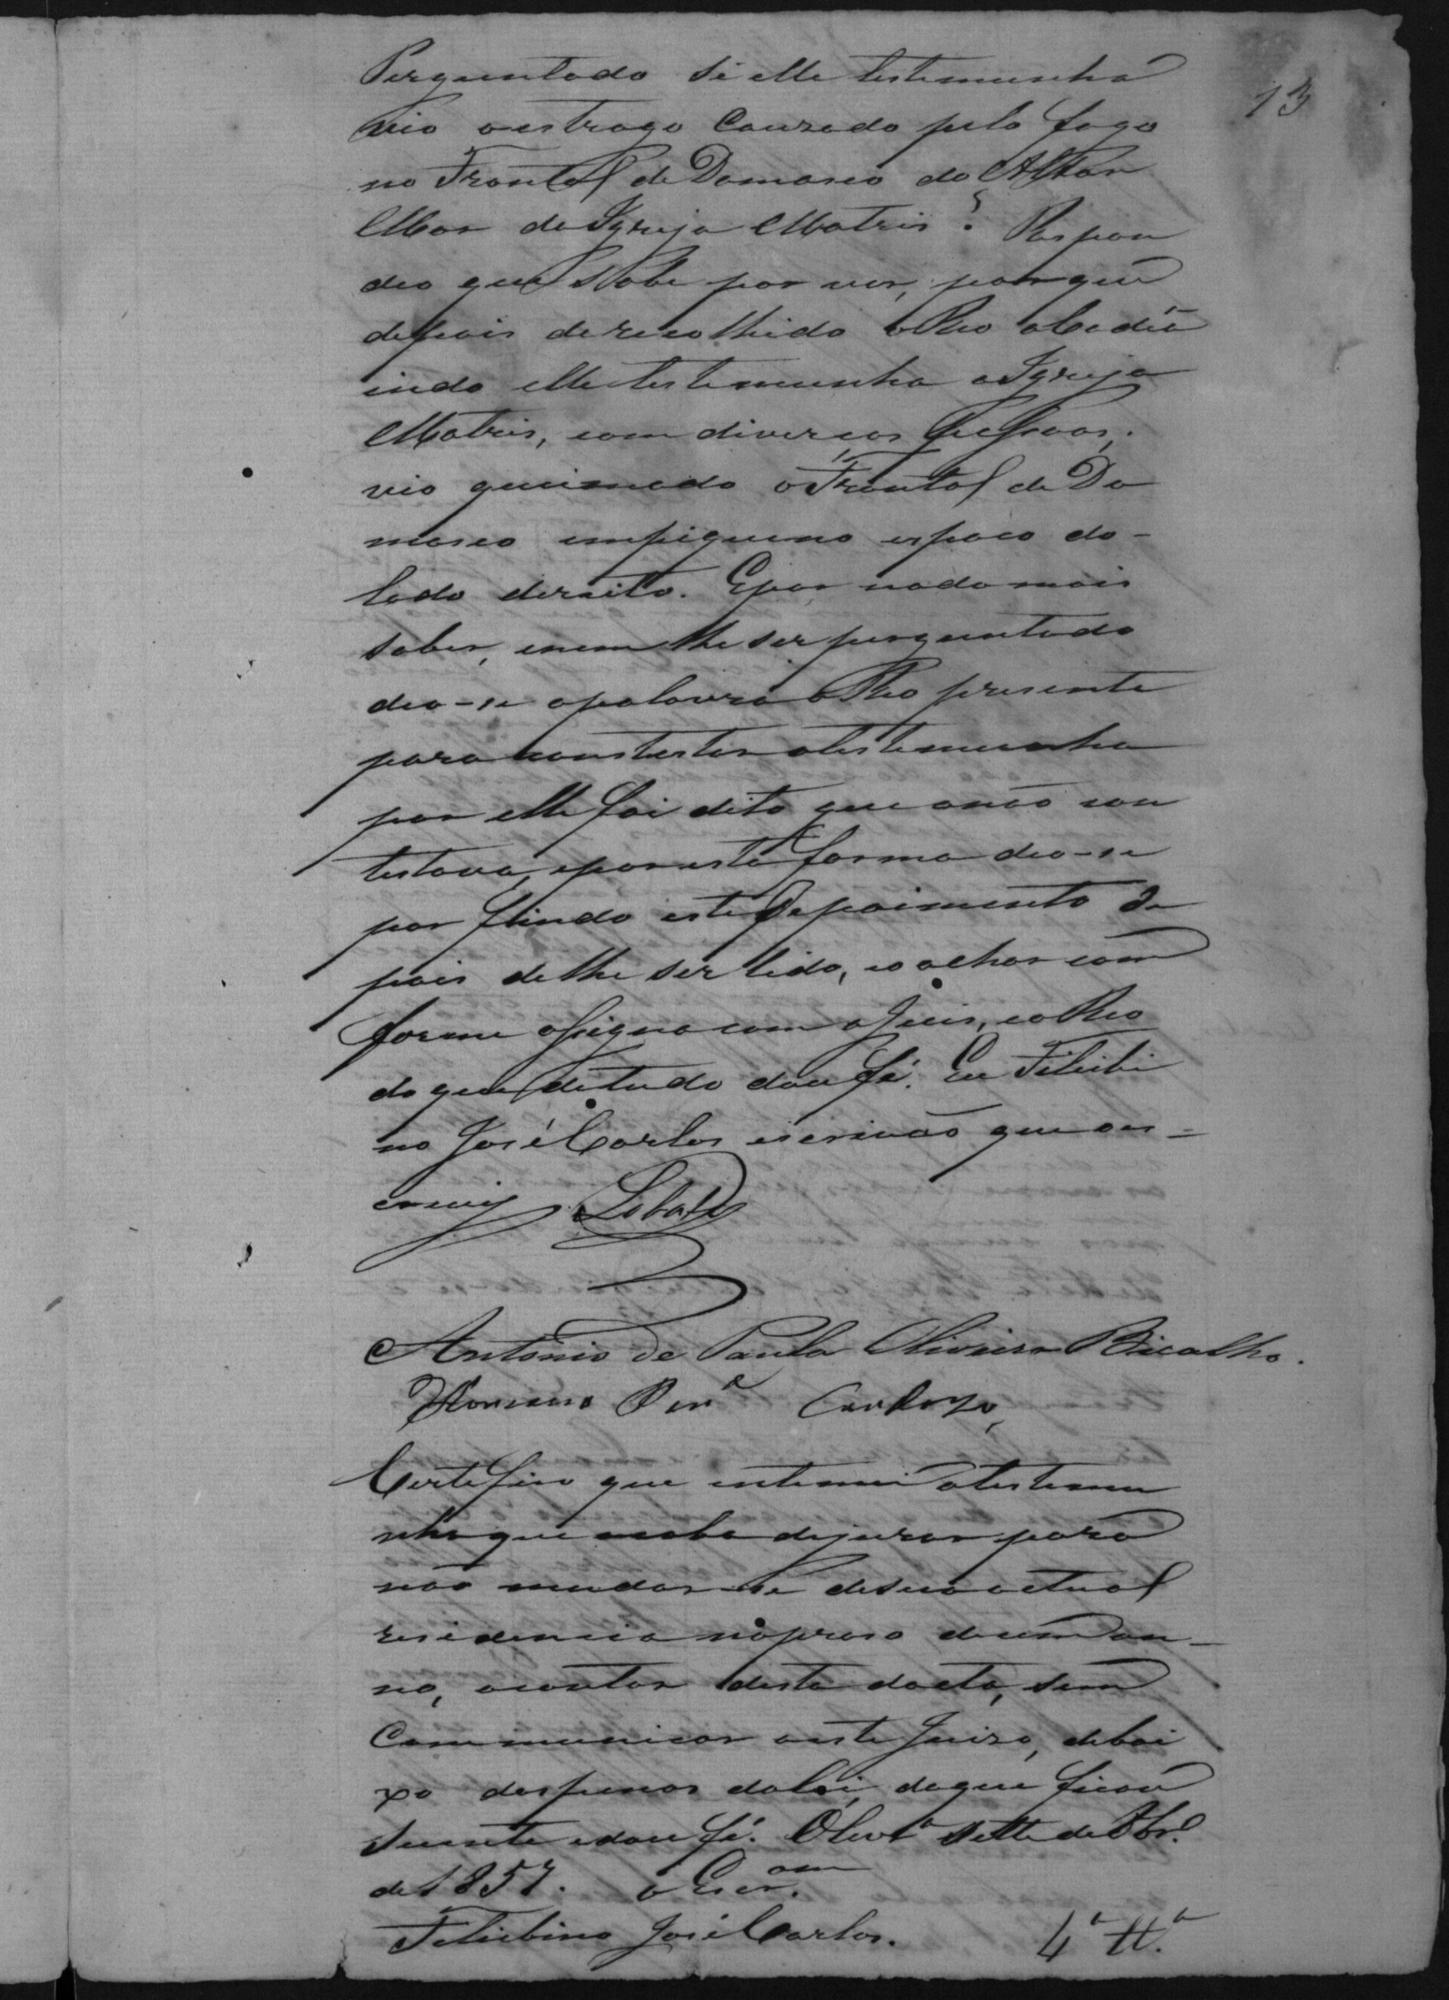 13
Perguntado si elle testemunha
vio o estrago Cauzado pelo fogo
no Frontal de Damasco do Altar
Mor da Igreja Matris? Respon
deo que Sabe por ver, por que
depois de recolhido o Reo a Cadêa
indo elle testemunha a Igreja
Matris, com diverças pessoas,
vio queimado o Frontal de Da
masco em piqueno espaco do-
lado direito. E por nada mais
saber, e nem lhe ser perguntado
deo-se a palavra ao Reo presente
para contestar a testemunha
por elle foi dito que a não con
testava, e por esta forma deo-se
por findo este Depoimento de
pois de lhe ser lido, e o achar con
forme assigna com o Juis, e o Reo
do que de tudo dou fé. Eu Felisbi
no José Carlos escrivão que o es-
crevij Lobato
Antonio de Paula Oliveira Bicalho.
Per.ª Cardozo,
Certifico que intemei a testemu
nha que acaba de jurar para
não mudar-se de sua actual
residencia no praso de um an-
no, a contar desta dacta, sem
Communicar a este Juizo, debai
xo das penas da lei, do que ficou
sciente e dou fé. Olivr.ª Sette de Abr.l
de 1857. o Escr.am
Felisbino José Carlos. 4ª Ttª